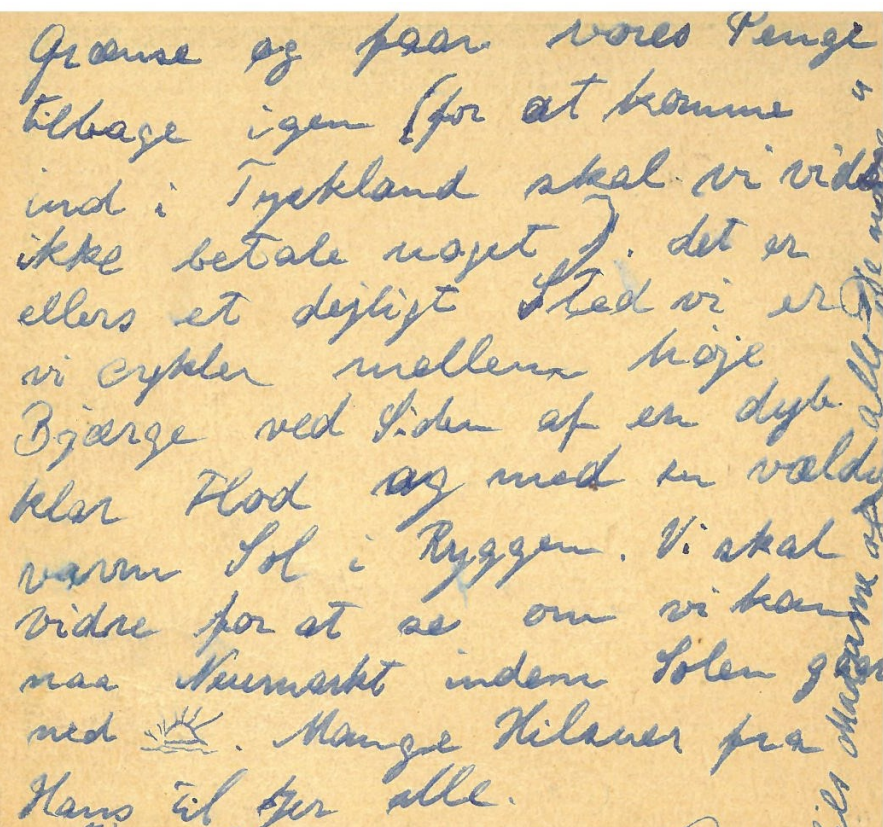 Grænse og faar vores Penge
tilbage igen (for at komme
ind i Tyskland skal vi vidst
ikke betale noget). det er
ellers et dejligt Sted vi er
vi cykler mellem høje
Bjærge ved Siden af en dyb
klar Flod og med en vældig
varm Sol i Ryggen. Vi skal
vidre for at se om vi kan
naa Neumarkt inden Solen gaar
ned. Mange Hilsner fra
Hans til Jer alle.